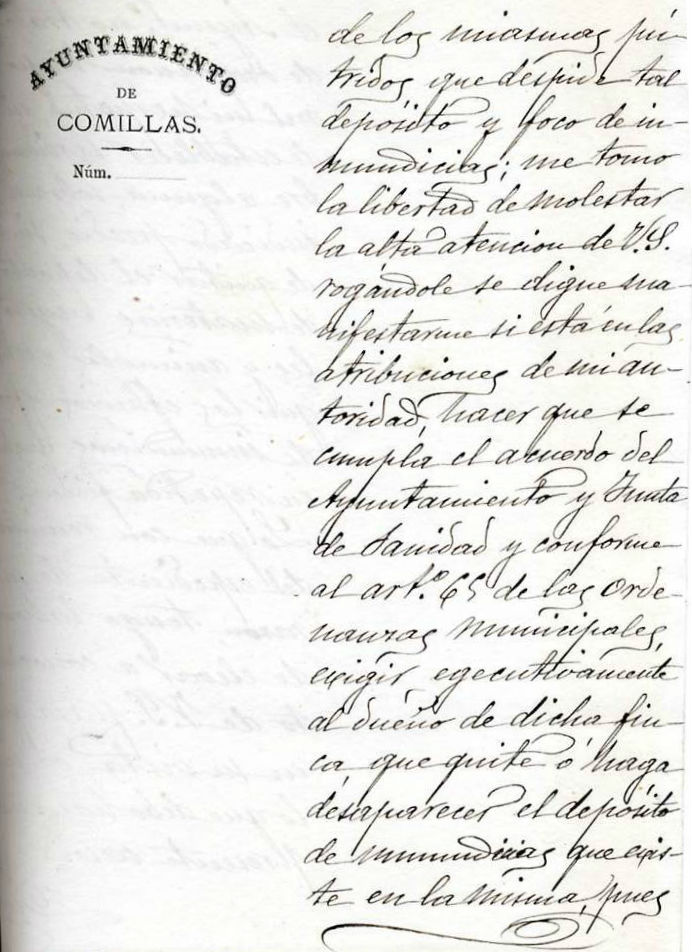 AYUNTAMIENTO
DE
COMILLAS.
Núm.
de los miasmas pú-
tridos que despide tal
depósito y foco de in-
mundicias; me tomo
la libertad de molestar
la alta atencion de V.S.
rogándole se digne ma-
nifestarme si está en las
atribuciones de mi au-
toridad, hacer que se
cumpla el acuerdo del
Ayuntamiento y Junta
de Sanidad y conforme
al art.º 65 de las Orde-
nanzas Municipales,
exigir egecutivamente
al dueño de dicha fin-
ca, que quite ó haga
desaparecer el depósito
de inmundicias que exis-
te en la misma, pues